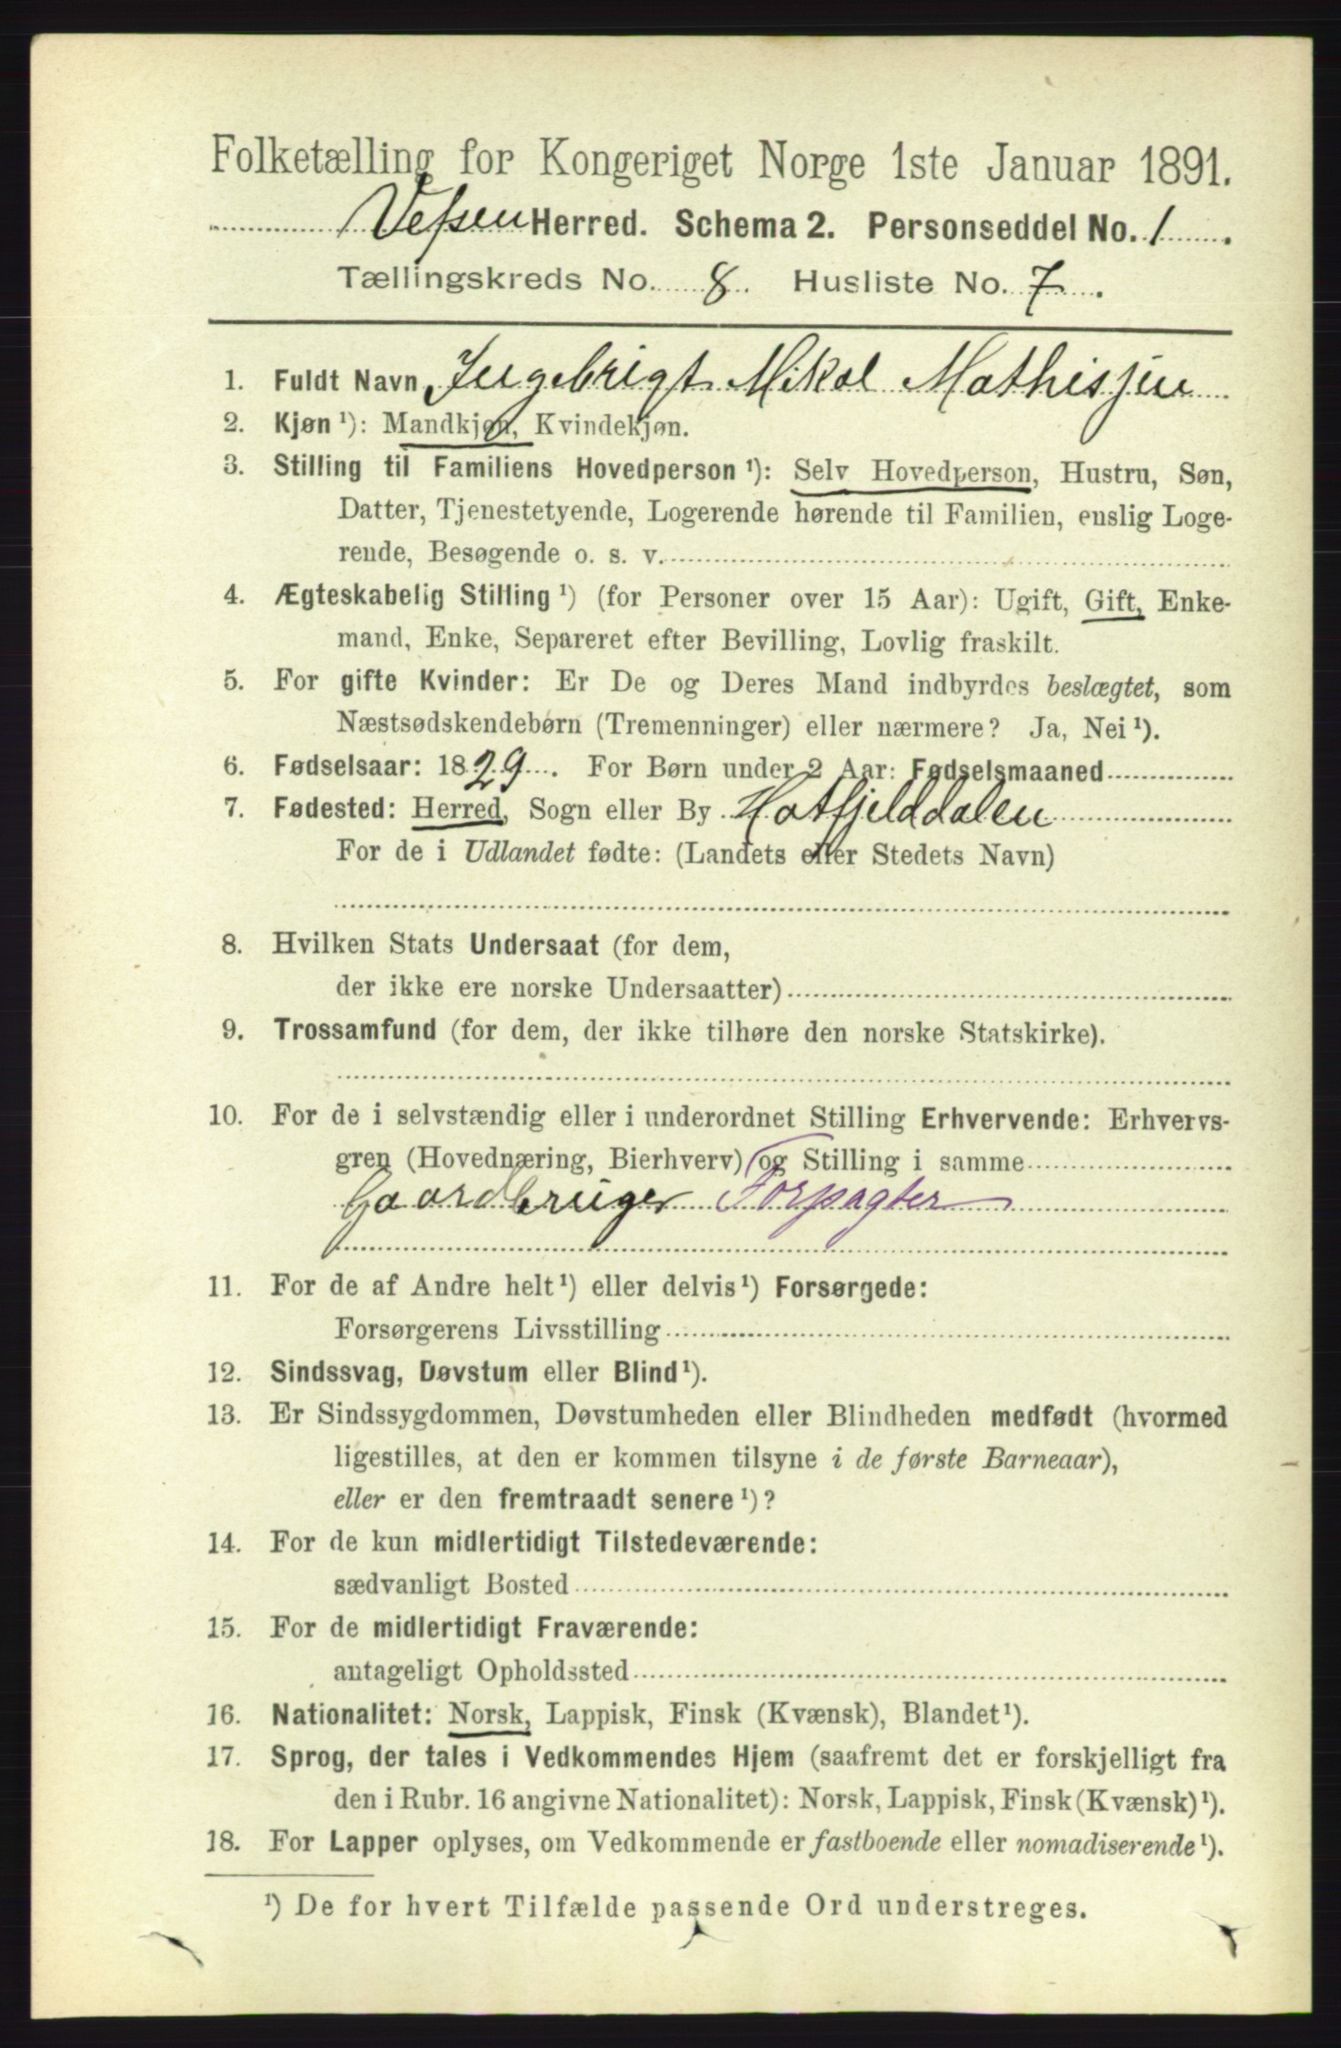 Folketælling for Kongeriget Norge 1ste Januar 1891.
Vefsen Herred. Schema 2. Personseddel No. 1.
Tællingskreds No. 8. Husliste No. 7.
1. Fuldt Navn Ingebrigt Mikal Mathissen
2. Kjøn ¹): Mandkjøn, Kvindekjøn.
3. Stilling til Familiens Hovedperson ¹): Selv Hovedperson, Hustru, Søn,
Datter, Tjenestetyende, Logerende hørende til Familien, enslig Loge-
rende, Besøgende o. s. v.
4. Ægteskabelig Stilling ¹) (for Personer over 15 Aar): Ugift, Gift, Enke-
mand, Enke, Separeret efter Bevilling, Lovlig fraskilt.
5. For gifte Kvinder: Er De og Deres Mand indbyrdes beslægtet, som
Næstsødskendebørn (Tremenninger) eller nærmere? Ja, Nei ¹).
6. Fødselsaar: 1829. For Børn under 2 Aar: Fødselsmaaned
7. Fødested: Herred, Sogn eller By Hatfjelddalen
For de i Udlandet fødte: (Landets eller Stedets Navn)
8. Hvilken Stats Undersaat (for dem,
der ikke ere norske Undersaatter)
9. Trossamfund (for dem, der ikke tilhøre den norske Statskirke).
10. For de i selvstændig eller i underordnet Stilling Erhvervende: Erhvervs-
gren (Hovednæring, Bierhverv) og Stilling i samme
Gaardbruger Forpagter
11. For de af Andre helt ¹) eller delvis ¹) Forsørgede:
Forsørgerens Livsstilling
12. Sindssvag, Døvstum eller Blind ¹).
13. Er Sindssygdommen, Døvstumheden eller Blindheden medfødt (hvormed
ligestilles, at den er kommen tilsyne i de første Barneaar),
eller er den fremtraadt senere ¹)?
14. For de kun midlertidigt Tilstedeværende:
sædvanligt Bosted
15. For de midlertidigt Fraværende:
antageligt Opholdssted
16. Nationalitet: Norsk, Lappisk, Finsk (Kvænsk), Blandet ¹).
17. Sprog, der tales i Vedkommendes Hjem (saafremt det er forskjelligt fra
den i Rubr. 16 angivne Nationalitet): Norsk, Lappisk, Finsk (Kvænsk) ¹).
18. For Lapper oplyses, om Vedkommende er fastboende eller nomadiserende ¹).
¹) De for hvert Tilfælde passende Ord understreges.